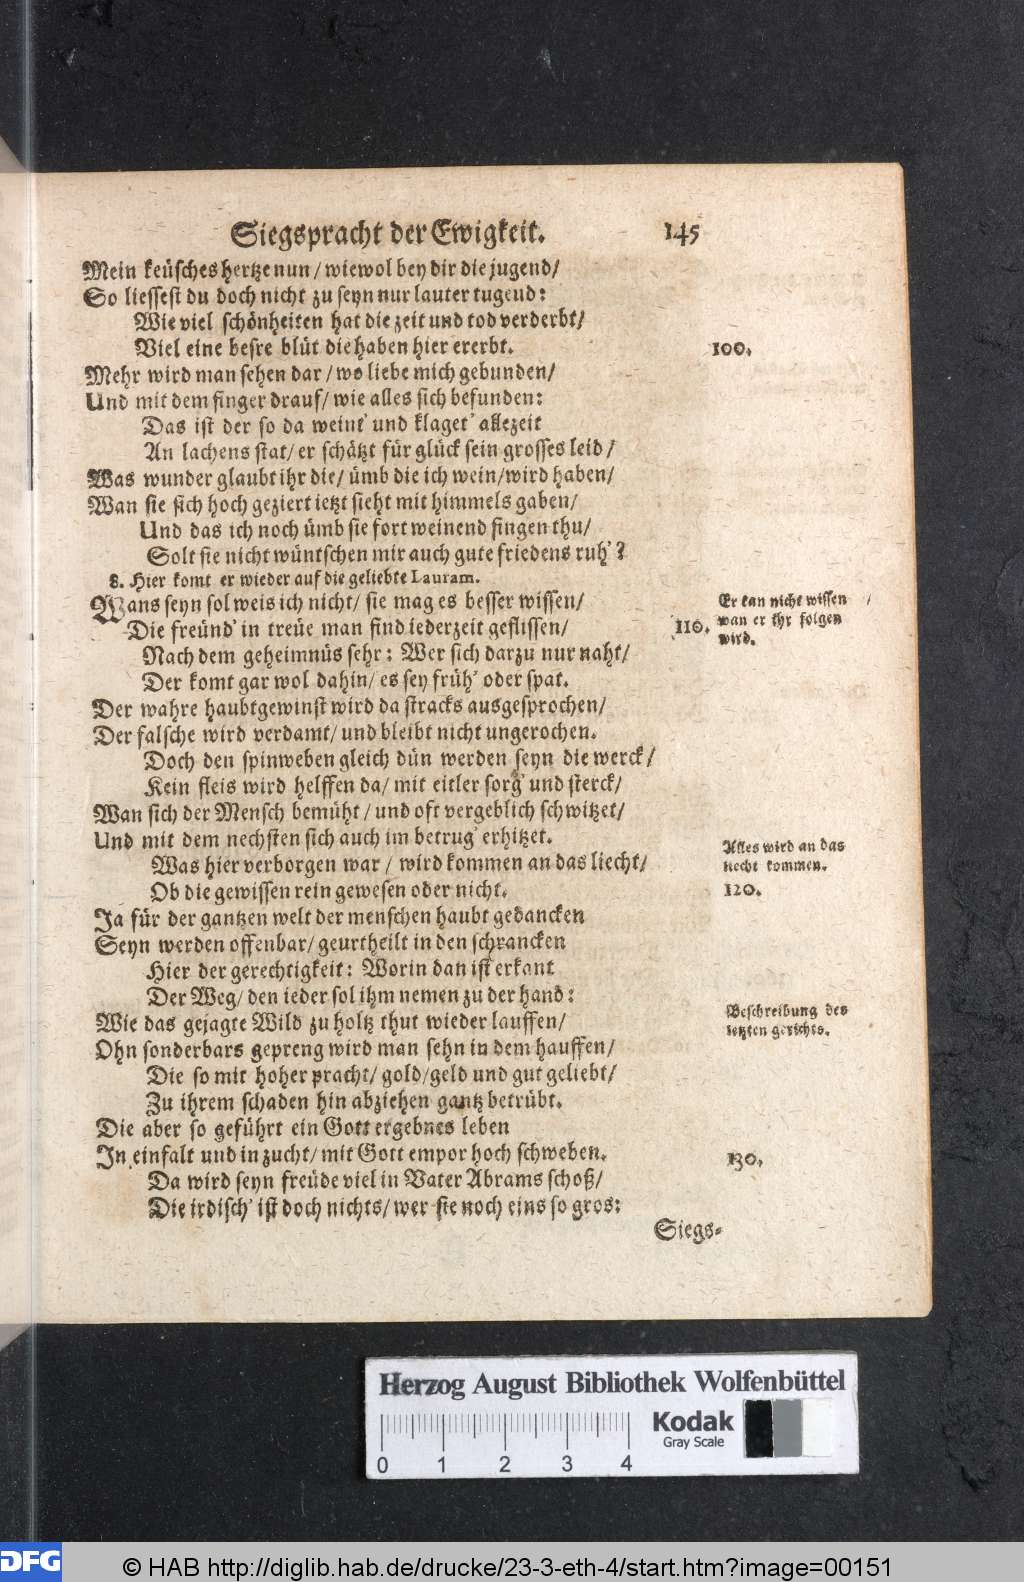 Siegspracht der Ewigkeit. 145
Mein keüsches hertze nun / wiewol bey dir die jugend /
So liessest du doch nicht zu seyn nur lauter tugend:
Wie viel schönheiten hat die zeit und tod verderbt /
Viel eine besre blüt die haben hier ererbt. 100.
Mehr wird man sehen dar / wo liebe mich gebunden /
Und mit dem finger drauf / wie alles sich befunden:
Das ist der so da weint' und klaget' allezeit
An lachens stat / er schätzt für glück sein grosses leid /
Was wunder glaubt ihr die / ümb die ich wein / wird haben /
Wan sie sich hoch geziert ietzt sieht mit himmels gaben /
Und das ich noch ümb sie fort weinend singen thu /
Solt sie nicht wüntschen mir auch gute friedens ruh'?
8. Hier komt er wieder auf die geliebte Lauram.
Wans seyn sol weis ich nicht / sie mag es besser wissen /
Die freünd' in treüe man find iederzeit geflissen / 110.
Er kan nicht wissen
wan er ihr folgen
wird.
Nach dem geheimnüs sehr: Wer sich darzu nur naht /
Der komt gar wol dahin / es sey früh' oder spat.
Der wahre haubtgewinst wird da stracks ausgesprochen /
Der falsche wird verdamt / und bleibt nicht ungerochen.
Doch den spinweben gleich dün werden seyn die werck /
Kein fleis wird helffen da / mit eitler sorg' und sterck /
Wan sich der Mensch bemüht / und oft vergeblich schwitzet /
Und mit dem nechsten sich auch im betrug' erhitzet.
Was hier verborgen war / wird kommen an das liecht /
Alles wird an das
liecht kommen.
Ob die gewissen rein gewesen oder nicht. 120.
Ja für der gantzen welt der menschen haubt gedancken
Seyn werden offenbar / geurtheilt in den schrancken
Hier der gerechtigkeit: Worin dan ist erkant
Der Weg / den ieder sol ihm nemen zu der hand:
Wie das gejagte Wild zu holtz thut wieder lauffen /
Beschreibung des
letzten gerichts.
Ohn sonderbars gepreng wird man sehn in dem hauffen /
Die so mit hoher pracht / gold / geld und gut geliebt /
Zu ihrem schaden hin abziehen gantz betrübt.
Die aber so geführt ein Gott ergebnes leben
In einfalt und in zucht / mit Gott empor hoch schweben. 130.
Da wird seyn freüde viel in Vater Abrams schoß /
Die irdisch' ist doch nichts / wer sie noch eins so gros:
Siegs-
Herzog August Bibliothek Wolfenbüttel
Kodak
Gray Scale
0 1 2 3 4
DFG
© HAB http://diglib.hab.de/drucke/23-3-eth-4/start.htm?image=00151